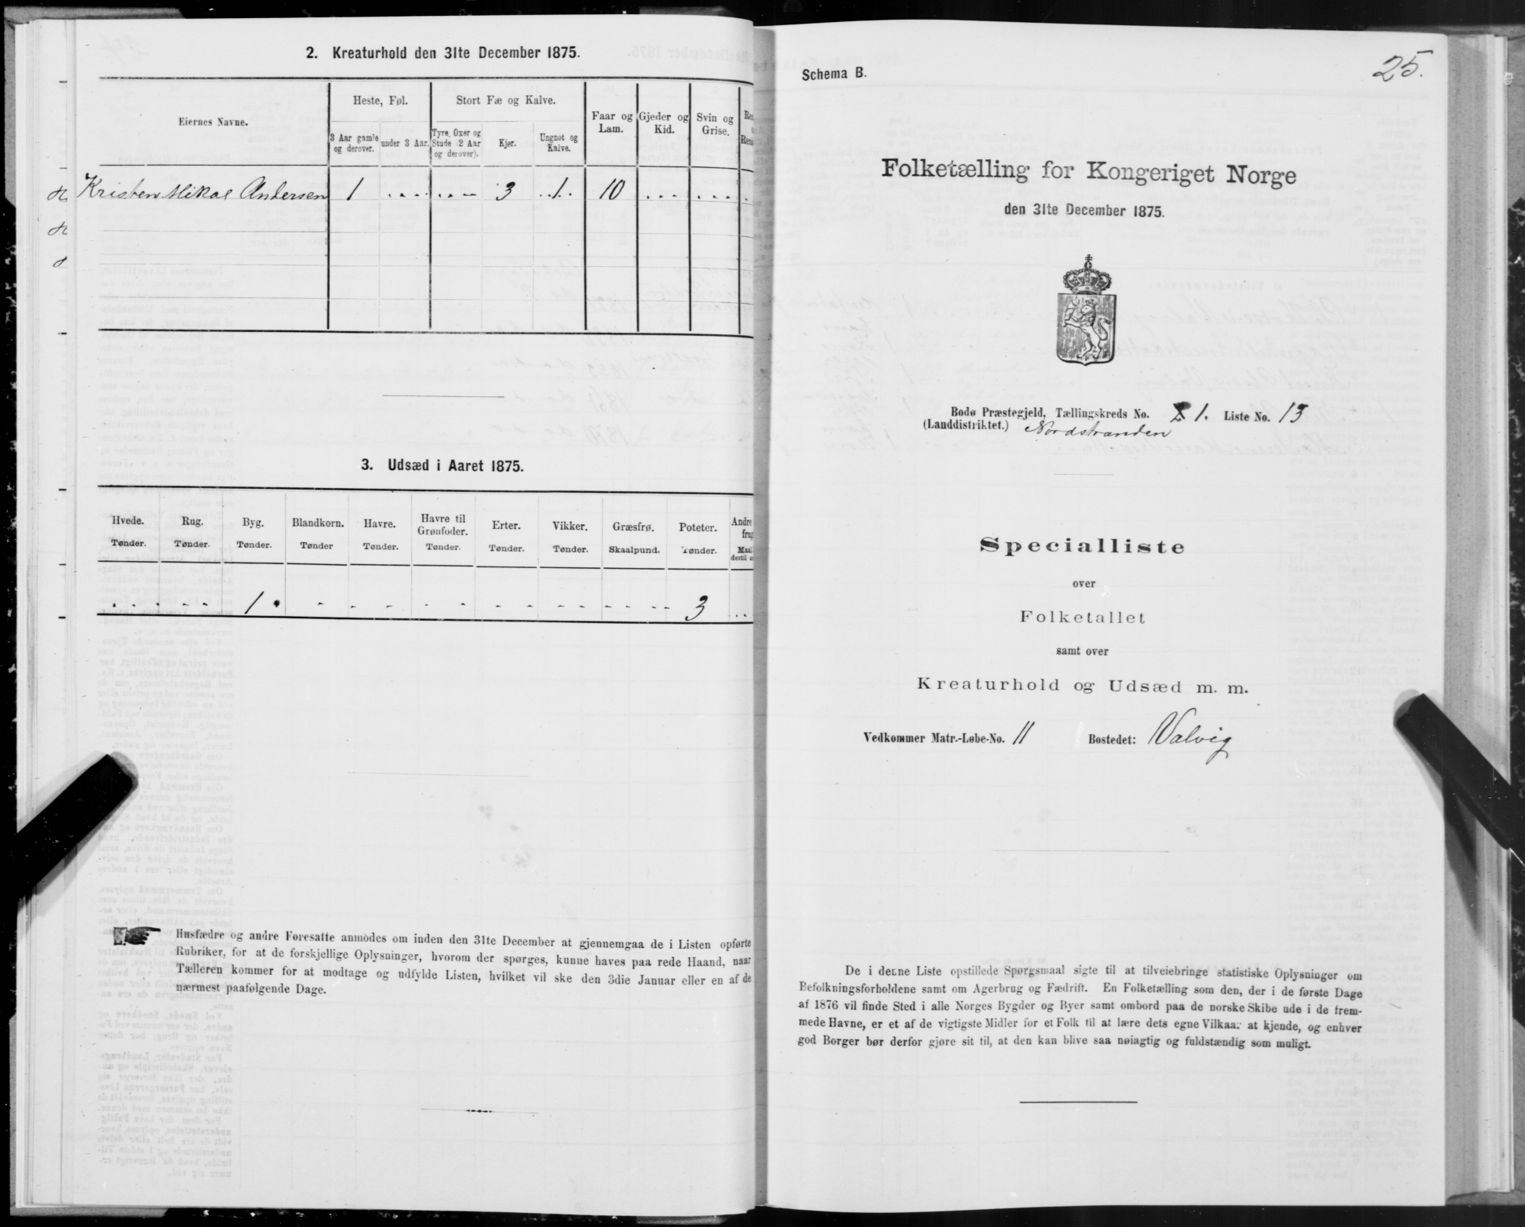 2. Kreaturhold den 31te December 1875.
Eiernes Navne.
Heste, Føl.
Stort Fæ og Kalve.
Faar og Lam.
Gjeder og Kid.
Svin og Grise.
3 Aar gamle og derover.
under 3 Aar.
Tyre, Oxer og Stude (2 Aar og derover).
Kjer.
Ungnøt og Kalve.
Kristen Mikal Andersen 1 . . . . . . . 3 . 1 . 10 . . . . . . .
3. Udsæd i Aaret 1875.
Hvede. Rug. Byg. Blandkorn. Havre. Havre til Grønfoder. Erter. Vikker. Græsfrø. Poteter. Andre
Tønder. Tønder. Tønder. Tønder Tønder. Tønder. Tønder. Tønder. Skaalpund. Tønder.
1 3
Husfædre og andre Foresatte anmodes om inden den 31te December at gjennemgaa de i Listen opførte
Rubriker, for at de forskjellige Oplysninger, hvorom der spørges, kunne haves paa rede Haand, naar
Tælleren kommer for at modtage og udfylde Listen, hvilket vil ske den 3die Januar eller en af de
nærmest paafølgende Dage.
25.
Schema B.
Folketælling for Kongeriget Norge
den 31te December 1875.
Bodø Præstegjeld, Tællingskreds No. 1. Liste No. 13
(Landdistriktet.) Nordstranden
Specialliste
over
Folketallet
samt over
Kreaturhold og Udsæd m. m.
Vedkommer Matr.-Løbe-No. 11 Bostedet: Valvig
De i denne Liste opstillede Spørgsmaal sigte til at tilveiebringe statistiske Oplysninger om
Befolkningsforholdene samt om Agerbrug og Fædrift. En Folketælling som den, der i de første Dage
af 1876 vil finde Sted i alle Norges Bygder og Byer samt ombord paa de norske Skibe ude i de frem-
mede Havne, er et af de vigtigste Midler for et Folk til at lære dets egne Vilkaar at kjende, og enhver
god Borger bør derfor gjøre sit til, at den kan blive saa nøiagtig og fuldstændig som muligt.